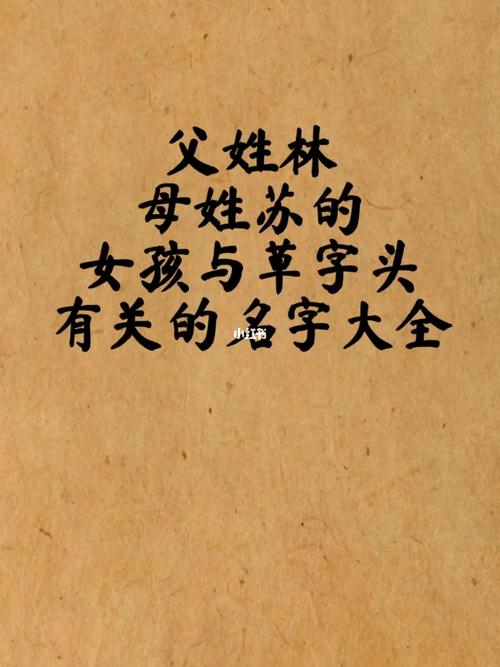 父姓林
母姓苏的
女孩与草字头
有关的名字大全
小红书